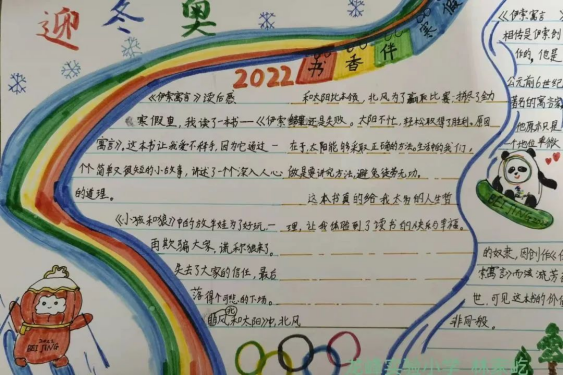 迎冬奥
2022 书香伴寒假
《伊索寓言》读后感
寒假里,我读了一本书——《伊索
寓言》,这本书让我爱不释手,因为它通过一
个简单又很短的小故事,讲述了一个深入人心
的道理。
《小孩和狼》中的放羊娃为了好玩一
再欺骗大家,谎称狼来了。
失去了大家的信任,最后
落得个可悲的下场。
风和太阳》中,北风
和太阳比本领,北风为了赢取比赛:拼尽了全力
还是失败。太阳不忙,轻松取得了胜利。原因
在于,太阳能够采取正确的方法。生活中的我们,
做是要讲究方法,避免徒劳无功。
这本书真的给我太多的人生哲
理,让我体验到了读书的快乐和幸福。
《伊索寓言》
相传是伊索创
作的,但是
公元前6世纪
著名的寓言
他原本只是
一个地位卑微
的奴隶,因创作《伊
索寓言》而流芳
世,可见这本书的价值
非同一般。
BEIJING
2022
BEIJING